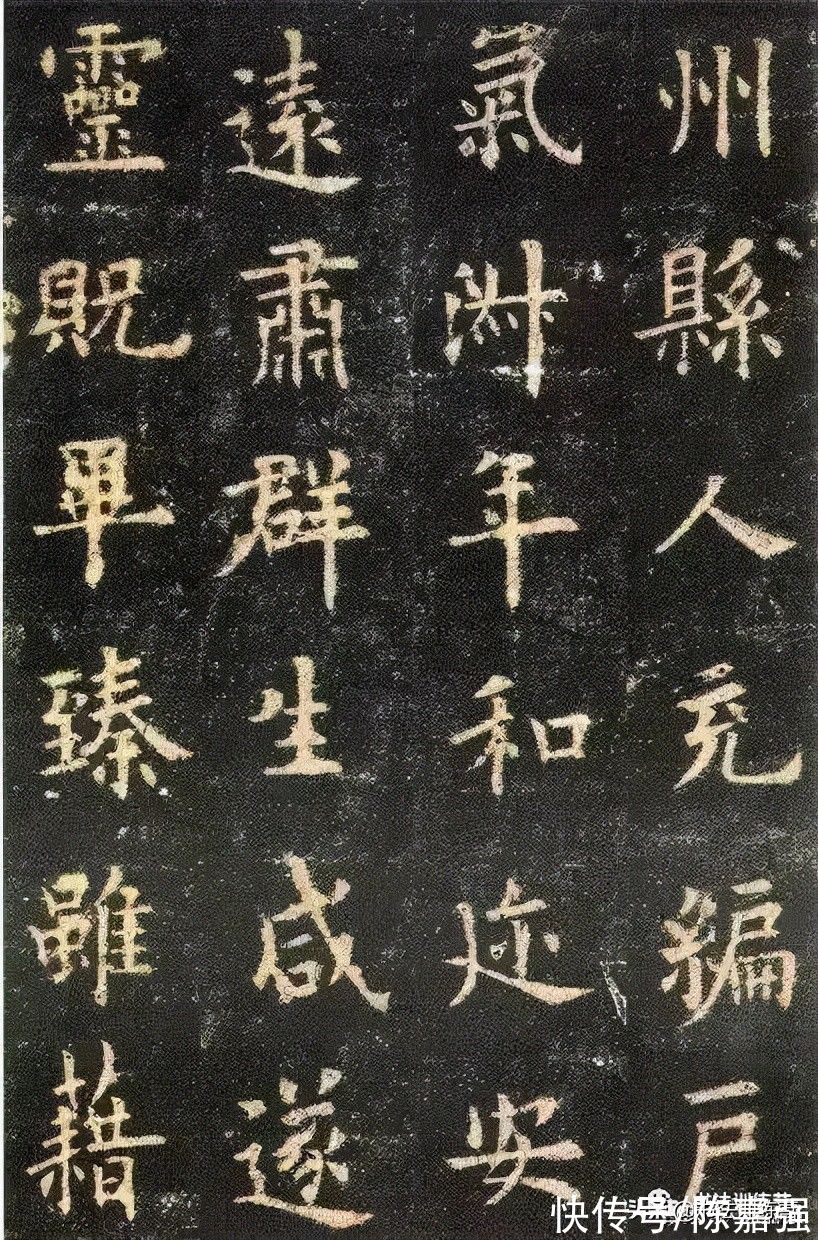 州縣人充編戶
氣淑年和迩安
遠肅群生咸遂
靈貺畢臻雖藉
快传号/陈嘉强